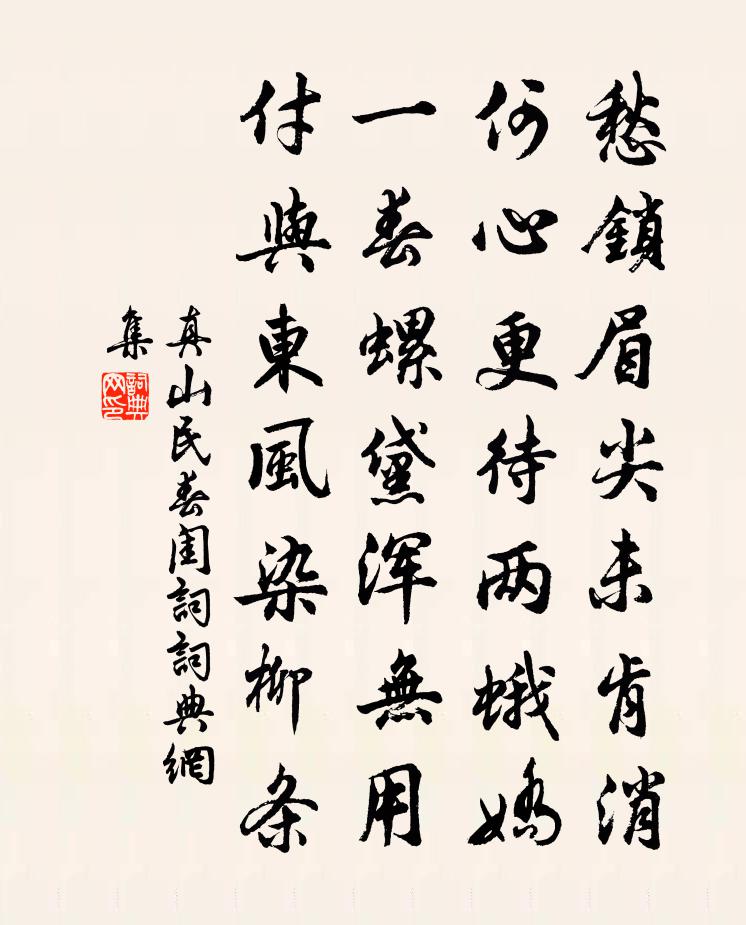 愁鎖眉尖未肯消
何心更待两蛾嬌
一春螺黛浑無用
付與東風染柳条
真山民春闺詞詞典網
集
詞典
网印